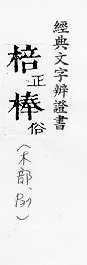 經典文字辨證書
棓正
棒俗
(木部、